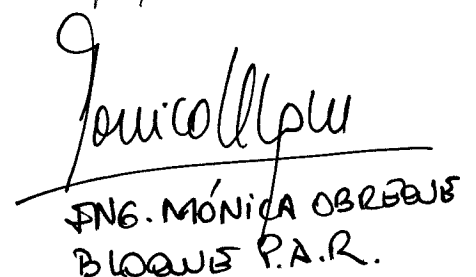 ING. MÓNICA OBREQUE
BLOQUE P.A.R.